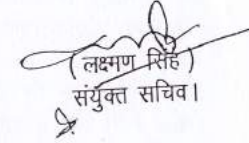 ( लक्ष्मण सिंह )
संयुक्त सचिव।